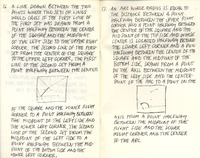 A LINE DRAWN BETWEEN THE TWO
POINTS WHERE TWO SETS OF LINES
WOULD CROSS IF THE FIRST LINE OF
THE FIRST SET WAS DRAWN FROM A
POINT HALFWAY BETWEEN THE CENTER
OF THE SQUARE AND THE MIDPOINT
OF THE LEFT SIDE TO THE UPPER RIGHT
CORNER, THE SECOND LINE OF THE FIRST
SET FROM THE CENTER OF THE SQUARE
TO THE UPPER LEFT CORNER, THE FIRST
LINE OF THE SECOND SET FROM A
POINT HALFWAY BETWEEN THE CENTER
OF THE SQUARE AND THE LOWER RIGHT
CORNER TO A POINT HALFWAY BETWEEN
THE MIDPOINT OF THE LEFT SIDE AND
THE UPPER LEFT CORNER, THE SECOND
LINE OF THE SECOND SET FROM THE
MIDPOINT OF THE LEFT SIDE TO A
POINT HALFWAY BETWEEN THE
MIDPOINT OF THE SIDE AND THE
LOWER LEFT CORNER.
AN ARC WHOSE RADIUS IS EQUAL TO
THE DISTANCE BETWEEN A POINT
HALFWAY BETWEEN THE UPPER RIGHT
CORNER AND A POINT HALFWAY BETWEEN
THE CENTER OF THE SQUARE AND THE
MIDPOINT OF THE SIDE AND WHOSE
CENTER IS LOCATED HALFWAY BETWEEN
THE LOWER LEFT CORNER AND A POINT
HALFWAY BETWEEN THE CENTER OF THE
SQUARE AND THE MIDPOINT OF THE
BOTTOM SIDE, DRAWN FROM A POINT
ON THE AXIS BETWEEN THE MIDPOINT
OF THE LEFT SIDE AND THE CENTER
POINT OF THE ARC TO A POINT ON THE
AXIS FROM A POINT HALFWAY
BETWEEN THE MIDPOINT OF THE
RIGHT SIDE AND THE LOWER
RIGHT CORNER AND THE CENTER
OF THE ARC.